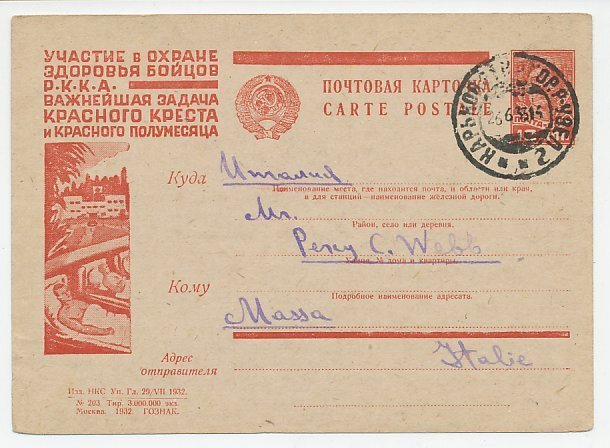 УЧАСТИЕ в ОХРАНЕ
ЗДОРОВЬЯ БОЙЦОВ
Р.К.К.А.
ВАЖНЕЙШАЯ ЗАДАЧА
КРАСНОГО КРЕСТА
и КРАСНОГО ПОЛУМЕСЯЦА
ПОЧТОВАЯ КАРТОЧКА
CARTE POSTALE
26 6 33
2
Куда
Италия
Наименование места, где находится почта, и области или края,
а для станций—наименование железной дороги.
Mr.
Район, село или деревня.
Percy C. Webb
Улица, № дома и квартиры.
Кому
Подробное наименование адресата.
Massa
Italie
Адрес
отправителя
Изд. НКС Уп. Гл. 29/VII 1932.
№ 203. Тир. 3.000.000 экз.
Москва. 1932. ГОЗНАК.